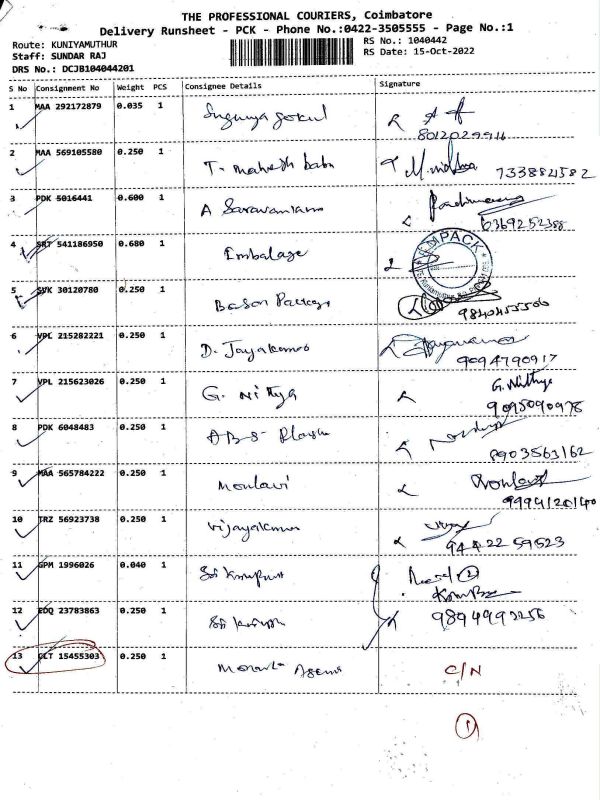 THE PROFESSIONAL COURIERS, Coimbatore
Delivery Runsheet - PCK - Phone No.:0422-3505555 - Page No.:1
Route: KUNIYAMUTHUR RS No.: 1040442
Staff: SUNDAR RAJ RS Date: 15-Oct-2022
DRS No.: DCJB104044201
S No Consignment No Weight PCS Consignee Details Signature
1 MAA 292172879 0.035 1
2 MAA 569105580 0.250 1 T. mahesh babu
733884582
3 PDK 5016441 0.600 1 A Saravanan
6369252388
4 SRT 541186950 0.680 1 Embalage
MPACK
5 SVK 30120780 0.250 1
9840455506
6 VPL 215282221 0.250 1 D. Jayakumar
9094790917
7 VPL 215623026 0.250 1 G. Nithya G. Nithya
9095090978
8 PDK 6048483 0.250 1
8903563162
9 MAA 565784222 0.250 1 Moulavi
9994120140
10 TRZ 56923738 0.250 1 Vijayakumar
94422 59523
11 GPM 1996026 0.040 1
12 EDQ 23783863 0.250 1
9894993256
13 CLT 15455303 0.250 1
C/N
1